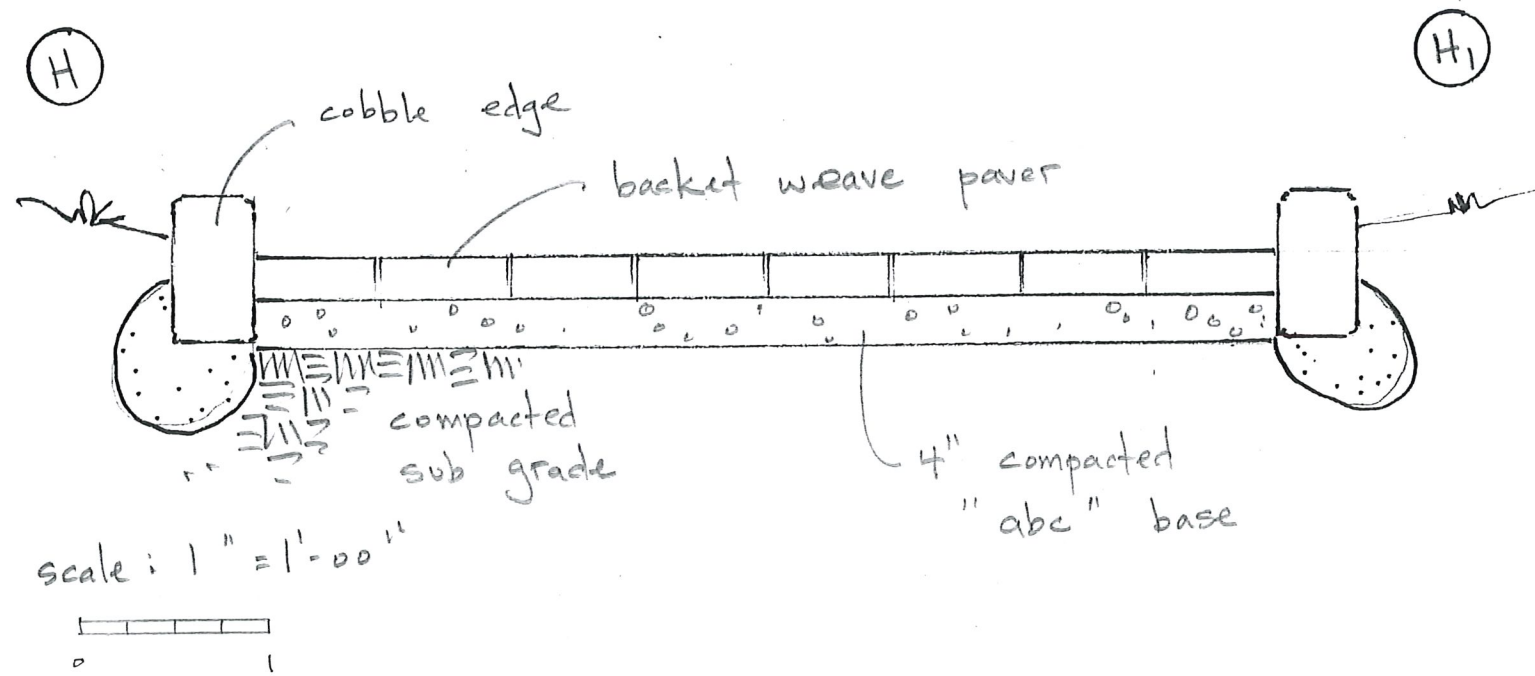 H
H1
cobble edge
basket weave paver
compacted
sub grade
4" compacted
"abc" base
scale: 1" = 1'-00"
0 1